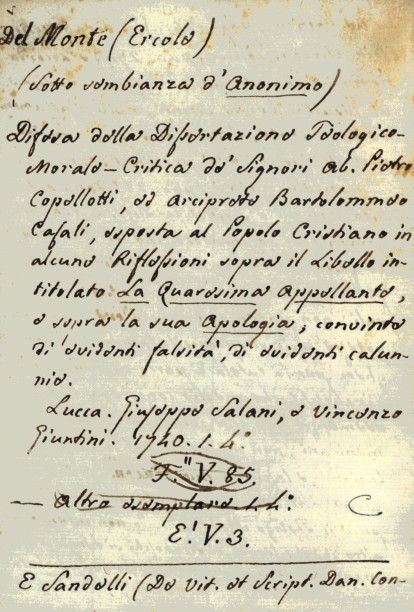 Del Monte (Ercole)
(Sotto sembianza d'Anonimo)
Difesa della Dissertazione Teologico-
Morale-Critica de' Signori Ab. Pietro
Copellotti, ed Arciprete Bartolommeo
Casali, esposta al Popolo Cristiano in
alcune Riflessioni sopra il Libello in-
titolato La Quaresima Appellante,
e sopra la sua Apologia, convinte
di evidenti falsità, di evidenti calun-
nie.
Lucca. Giuseppe Salani, e Vincenzo
Giuntini. 1740. 1. 4°.
F." V. 85.
— Altro esemplare 1. 4°.
E! V. 3.
E Sandelli (De Vit. et Script. Dan. Con-